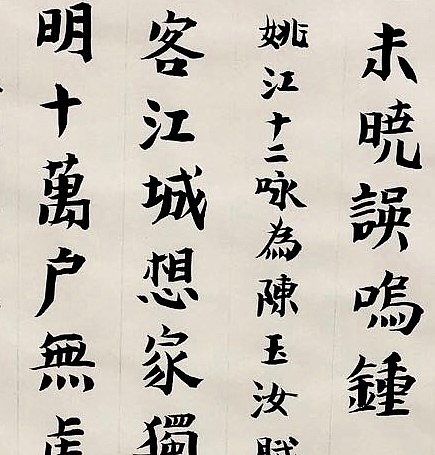 未暁誤嗚鍾
姚江十二咏為陳玉汝賦
客江城想家獨
明十萬户無